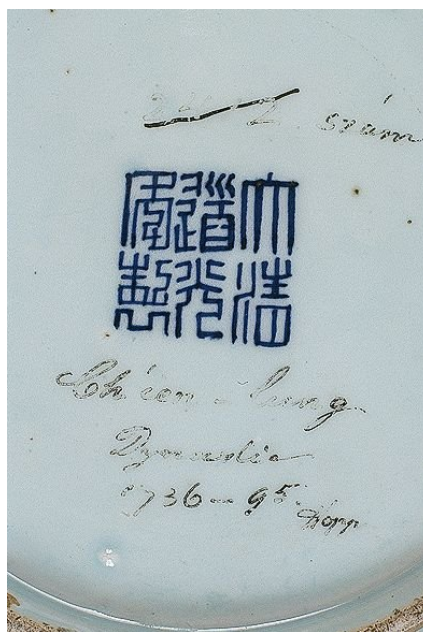 szám
大清
道光
年製
Ch'ien-Lung
Dynastie
1736-95 Hopp